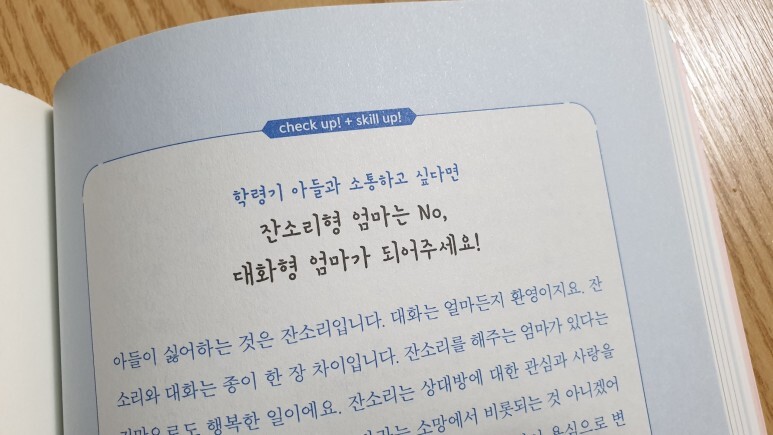 check up! + skill up!
학령기 아들과 소통하고 싶다면
잔소리형 엄마는 No,
대화형 엄마가 되어주세요!
아들이 싫어하는 것은 잔소리입니다. 대화는 얼마든지 환영이지요. 잔
소리와 대화는 종이 한 장 차이입니다. 잔소리를 해주는 엄마가 있다는
행복한 일이에요. 잔소리는 상대방에 대한 관심과 사랑을
소망에서 비롯되는 것 아니겠어
변